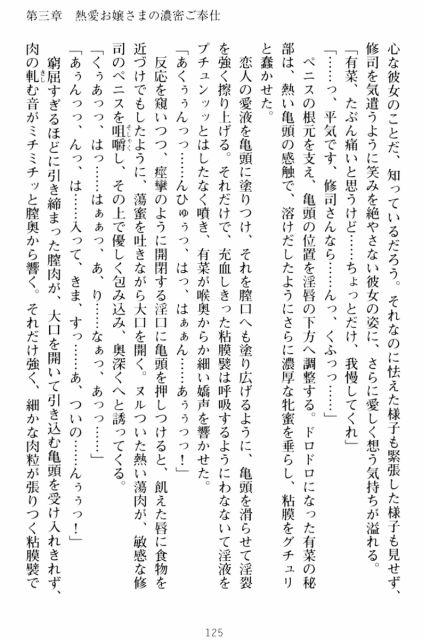 第三章 熱愛お嬢さまの濃密ご奉仕
心な彼女のことだ、知っているだろう。それなのに怯えた様子も緊張した様子も見せず、
修司を気遣うように笑みを絶やさない彼女の姿に、さらに愛しく想う気持ちが溢れる。
「有菜、たぶん痛いと思うけど……ちょっとだけ、我慢してくれ」
「……っ、平気です、修司さんなら……んっ、くふっっ……」
ペニスの根元を支え、亀頭の位置を淫唇の下方へ調整する。ドロドロになった有菜の秘
部は、熱い亀頭の感触で、溶けだしたようにさらに濃厚な牝蜜を垂らし、粘膜をグチュリ
と蠢かせた。
恋人の愛液を亀頭に塗りつけ、それを膣口へも塗り広げるように、亀頭を滑らせて淫裂
を強く擦り上げる。それだけで、充血しきった粘膜襞は呼吸するようにわなないて淫液を
プチュンッッとはしたなく噴き、有菜が喉奥からか細い嬌声を響かせた。
「あくぅんっっ……んひゅぅっ、はっ、はぁぁん……あぅぅっっ！」
反応を窺いつつ、痙攣のように開閉する淫口に亀頭を押しつけると、飢えた唇に食物を
近づけでもしたように、蕩蜜を吐きながら大口を開く。ヌルついた熱い蕩肉が、敏感な修
司のペニスを咀嚼し、その上で優しく包み込み、奥深くへと誘ってくる。
「くぅあっっ、はっ……はぁぁっ、あ、り……なぁっ、あっっ……」
「あぁんっっ、んっ、は……入って、きま、すっ……あ、ついの……んぅぅっ！」
窮屈すぎるほどに引き締まった膣肉が、大口を開いて引き込む亀頭を受け入れきれず、
肉の軋む音がミチミチッと膣奥から響く。それだけ強く、細かな肉粒が張りつく粘膜襞で
125